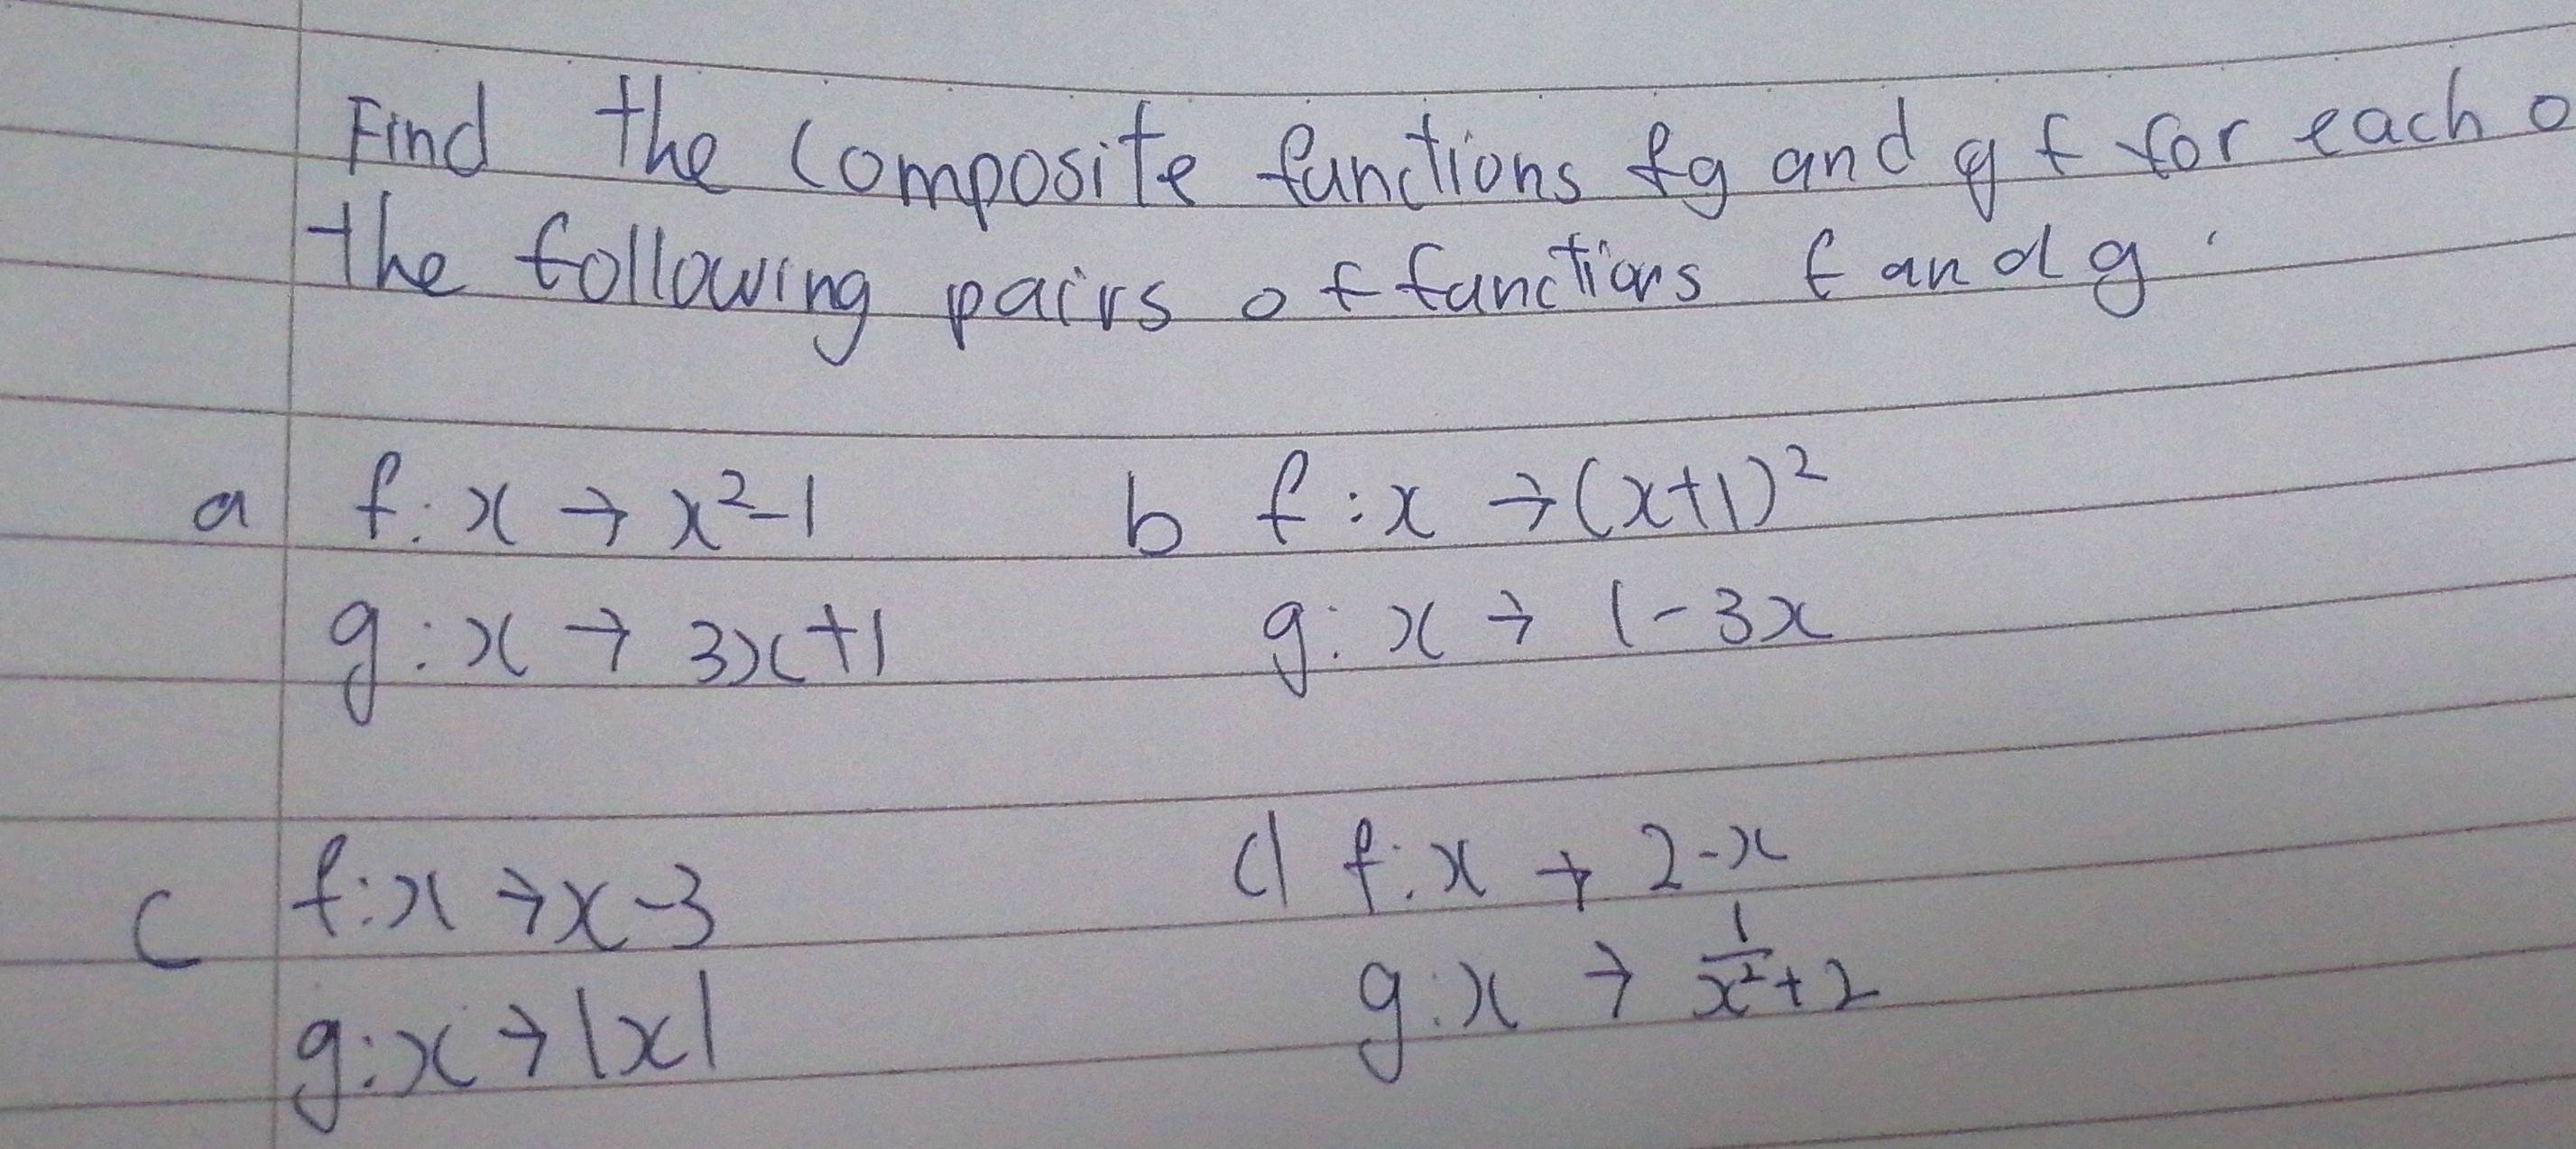 Find the composite functions fg and gf for each o
the following pairs of functions f and g:
a f: x → x²-1 b f: x → (x+1)²
g: x → 3x+1 g: x → 1-3x
c f: x → x-3 d f: x → 2-x
g: x → |x| g: x → 1/x²+2